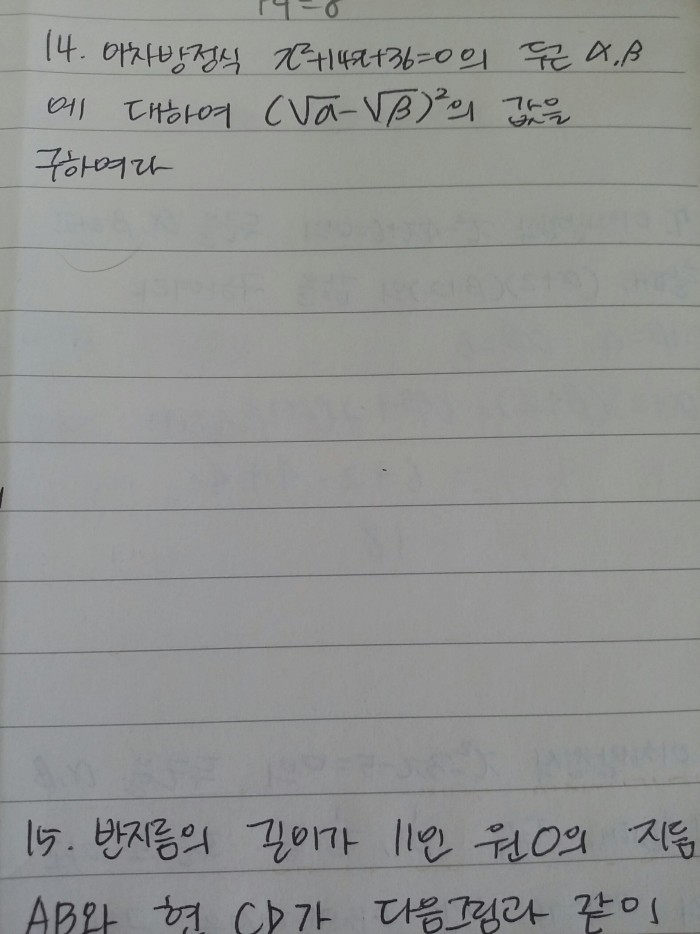 14. 이차방정식 x²+14x+36=0의 두근 α,β
에 대하여 (√α-√β)²의 값을
구하여라
15. 반지름의 길이가 11인 원O의 지름
AB와 현 CD가 다음그림과 같이